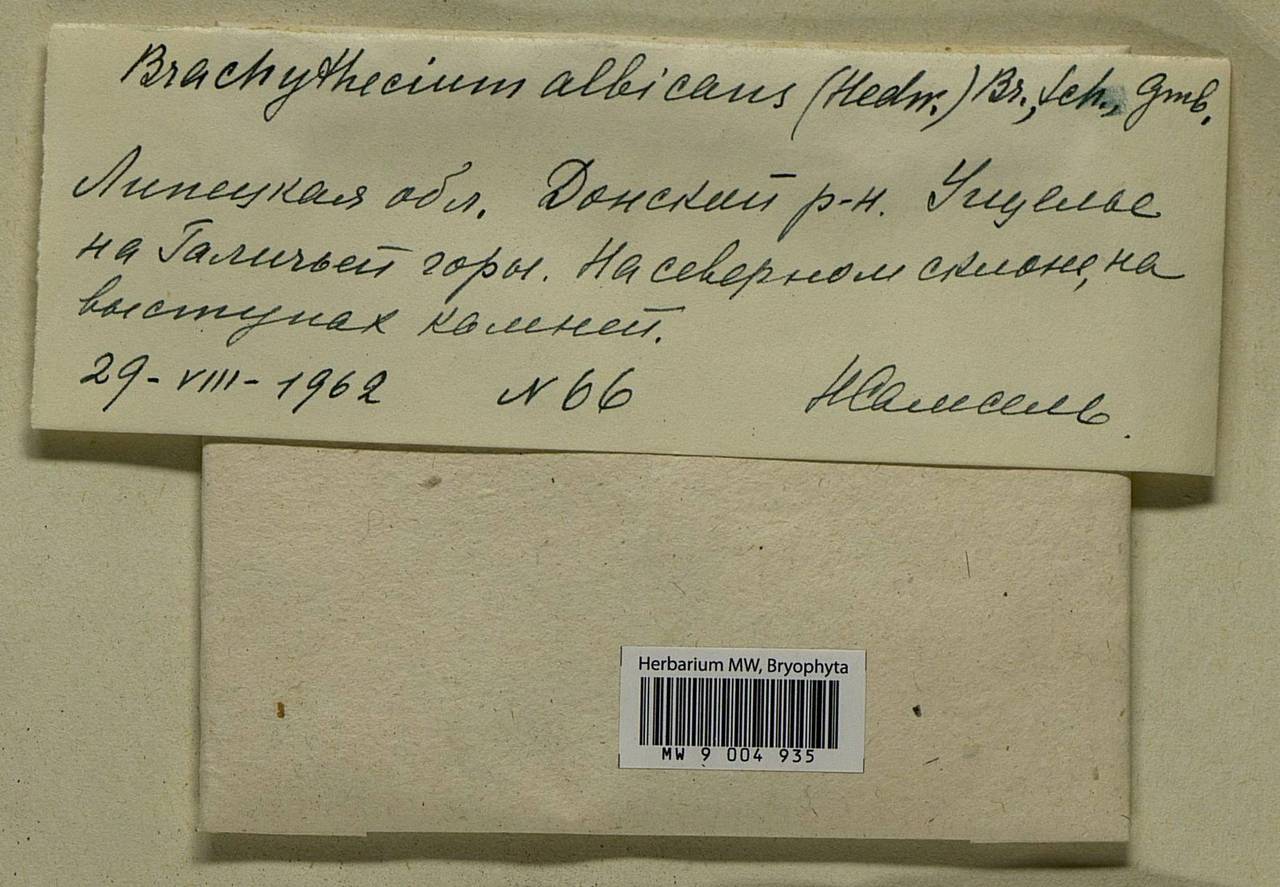 Brachythecium albicans (Hedw.) Br., Sch., Gmb.
Липецкая обл. Донский р-н. Ущелье
на Галичьей горы. На северном склоне, на
выступах камней.
29-VIII-1962 N 66 НСамсель.
Herbarium MW, Bryophyta
MW 9 004 935